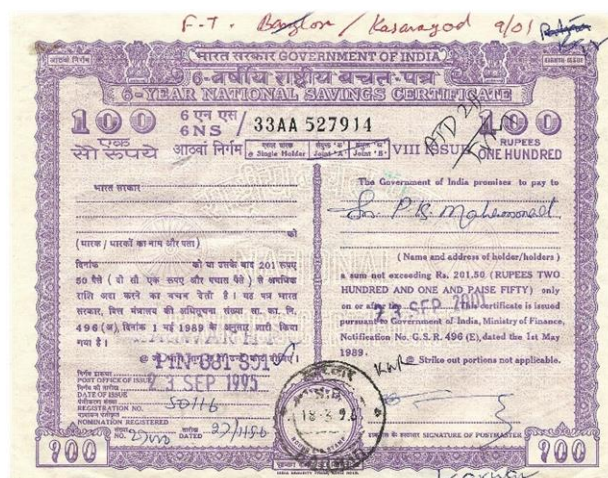 F.T. Banglore / Kasaragod 9/01
आठवां निर्गम
भारत सरकार GOVERNMENT OF INDIA
6-वर्षीय राष्ट्रीय बचत-पत्र
6-YEAR NATIONAL SAVINGS CERTIFICATE
100
एक
सौ रूपये
6 एन एस
6NS / 33AA 527914
आठवां निर्गम
@ Single Holder Joint 'A' Joint 'B' VIII ISSUE
100
RUPEES
ONE HUNDRED
भारत सरकार
को
(धारक / धारकों का नाम और पता)
दिनांक को या उसके बाद 201 रूपए
50 पैसे (दो सौ एक रूपए और पचास पैसे) से अनधिक
राशि अदा करने का वचन देती है। यह पत्र भारत
सरकार, वित्त मंत्रालय की अधिसूचना संख्या सा. का. नि.
496 (अ), दिनांक 1 मई 1989 के अनुसार जारी किया
गया है।
PIN-581 301
POST OFFICE OF ISSUE
23 SEP 1995
DATE OF ISSUE
REGISTRATION NO. 50116
NOMINATION REGISTERED
NO. DATED
The Government of India promises to pay to
Sri P.K. Mohammad
(Name and address of holder/holders)
a sum not exceeding Rs. 201.50 (RUPEES TWO
HUNDRED AND ONE AND PAISE FIFTY) only
on or after the This certificate is issued
23 SEP 2001
pursuant to Government of India, Ministry of Finance,
Notification No. G.S.R. 496 (E), dated the 1st May
1989.
KAR
@ Strike out portions not applicable.
SIGNATURE OF POSTMASTER
100
100